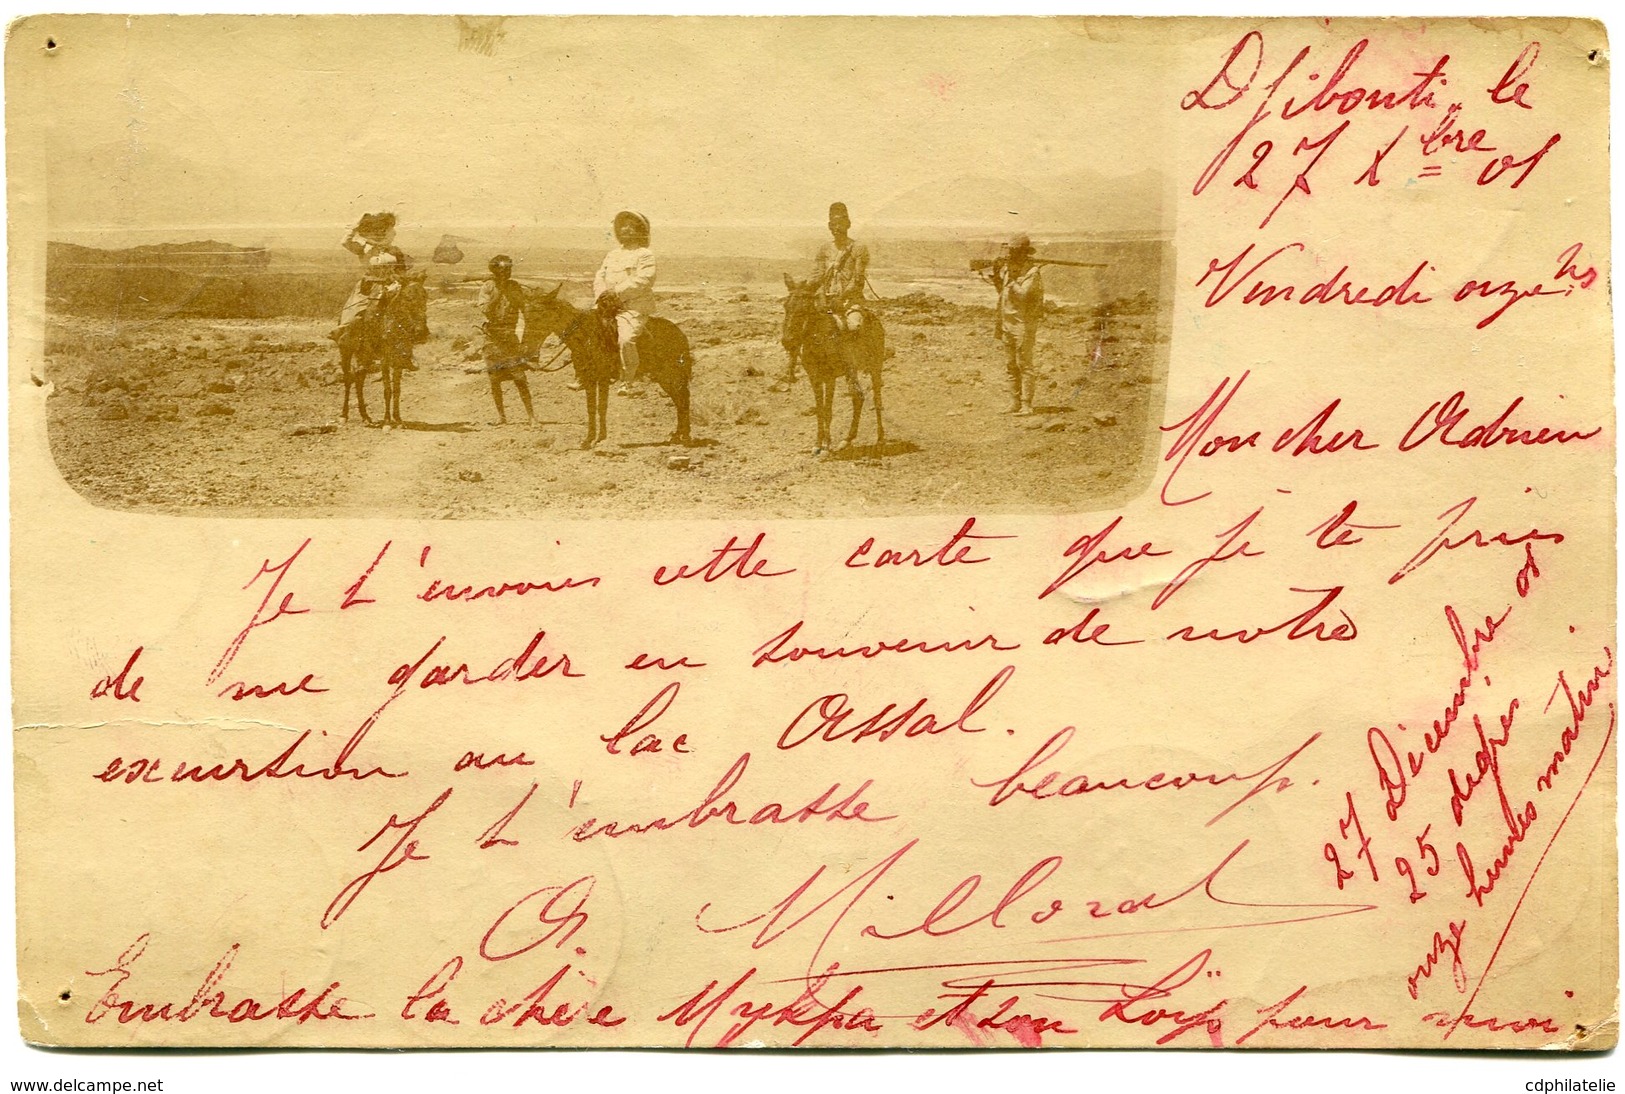 Djibouti, le
27 Xbre 01
Vendredi onze hs
Mon cher Adrien
Je t'envoies cette carte que je te pries
de me garder en souvenir de notre
excursion au lac Assal.
Je t'embrasse beaucoup.
A. Millorat
Embrasse la chère et son pour moi
27 Décembre 01
25 degrés
onze heures matin
www.delcampe.net
cdphilatelie